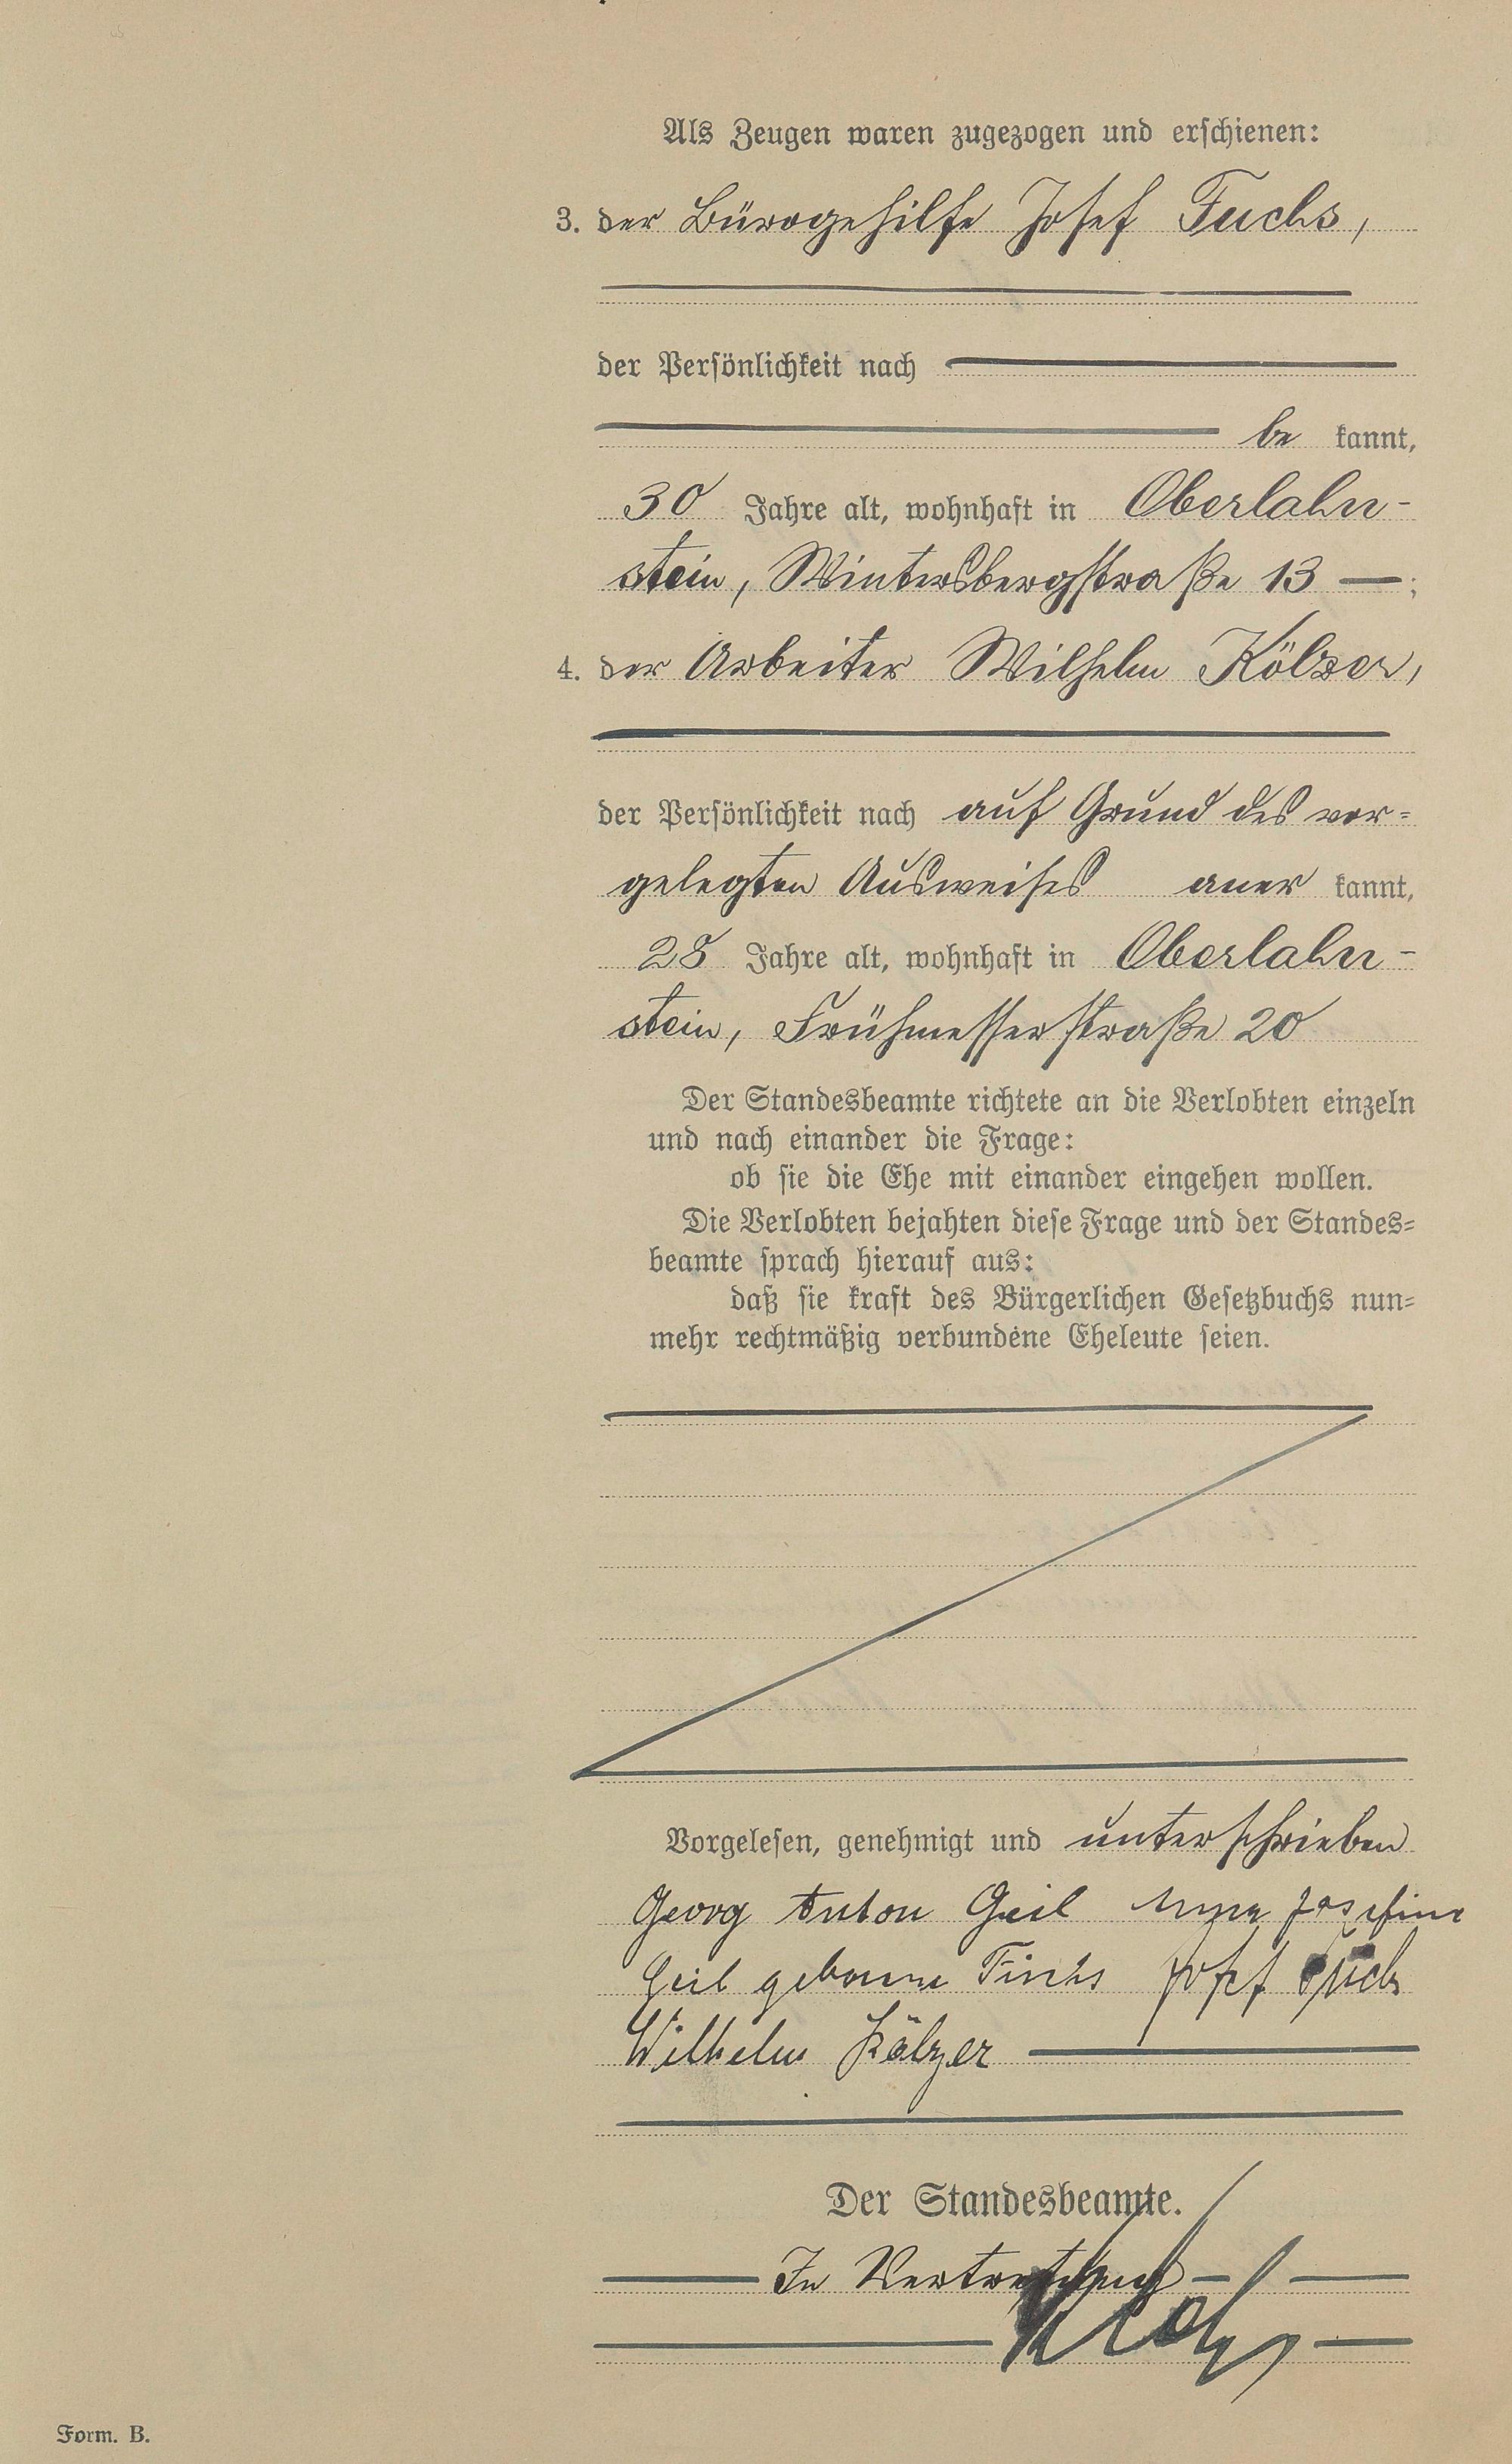 Als Zeugen waren zugezogen und erschienen:
3. der Bürogehilfe Josef Fuchs,
der Persönlichkeit nach
be kannt,
30 Jahre alt, wohnhaft in Oberlahn-
stein, Wintersbergstraße 13 — ;
4. der Arbeiter Wilhelm Kölzer,
der Persönlichkeit nach auf Grund des vor=
gelegten Ausweises aner kannt,
28 Jahre alt, wohnhaft in Oberlahn-
stein, Frühmesserstraße 20
Der Standesbeamte richtete an die Verlobten einzeln
und nach einander die Frage:
ob sie die Ehe mit einander eingehen wollen.
Die Verlobten bejahten diese Frage und der Standes=
beamte sprach hierauf aus:
daß sie kraft des Bürgerlichen Gesetzbuchs nun=
mehr rechtmäßig verbundene Eheleute seien.
Vorgelesen, genehmigt und unterschrieben
Georg Anton Geil Anna Josefine
Geil geborene Fuchs Josef Fuchs
Wilhelm Kölzer
Der Standesbeamte.
In Vertretung
Form. B.